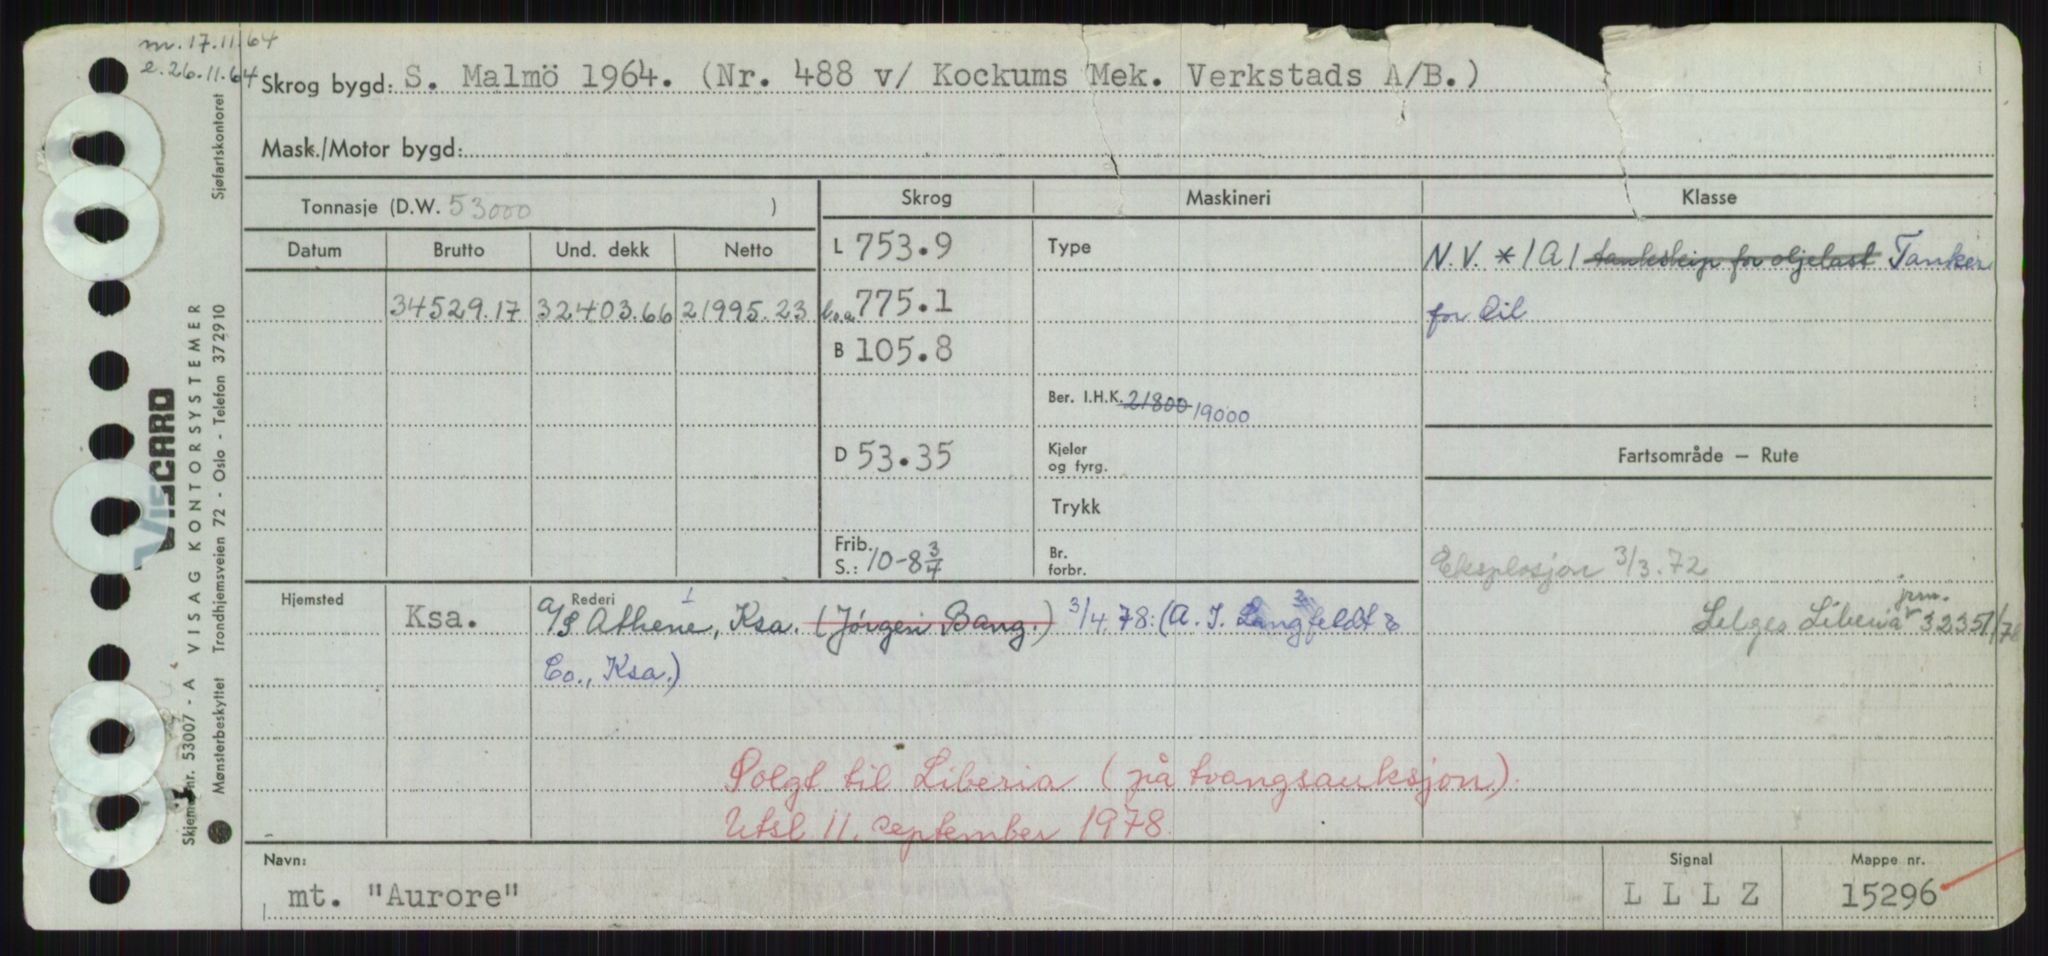 m. 17.11.64
e. 26.11.64
Skrog bygd: S. Malmö 1964. (Nr. 488 v/ Kockums Mek. Verkstads A/B.)
Mask./Motor bygd:
Tonnasje (D.W. 53000 )
Skrog Maskineri Klasse
Datum Brutto Und. dekk Netto
34529.17 32403.66 21995.23
L 753.9
l.o.a 775.1
B 105.8
D 53.35
Frib. S.: 10-8 3/4
Type
Ber. I.H.K. 21800 19000
Kjeler og fyrg.
Trykk
Br. forbr.
N.V. * 1A1 tankskip for oljelast Tanker
for Oil
Fartsområde — Rute
Eksplosjon 3/3.72
jrn.
Selges Liberia 32351/78
Hjemsted Ksa.
Rederi
A/S Athene, Ksa. (Jørgen Bang.) 3/4.78: (A. I. Langfeldt &
Co., Ksa.)
Solgt til Liberia (på tvangsauksjon).
Utsl 11. september 1978.
Navn: mt. "Aurore"
Signal L L L Z
Mappe nr. 15296
VISCARD
Skjema nr. 53007 - A VISAG KONTORSYSTEMER
Mønsterbeskyttet Trondhjemsveien 72 - Oslo - Telefon 37 29 10 Sjøfartskontoret